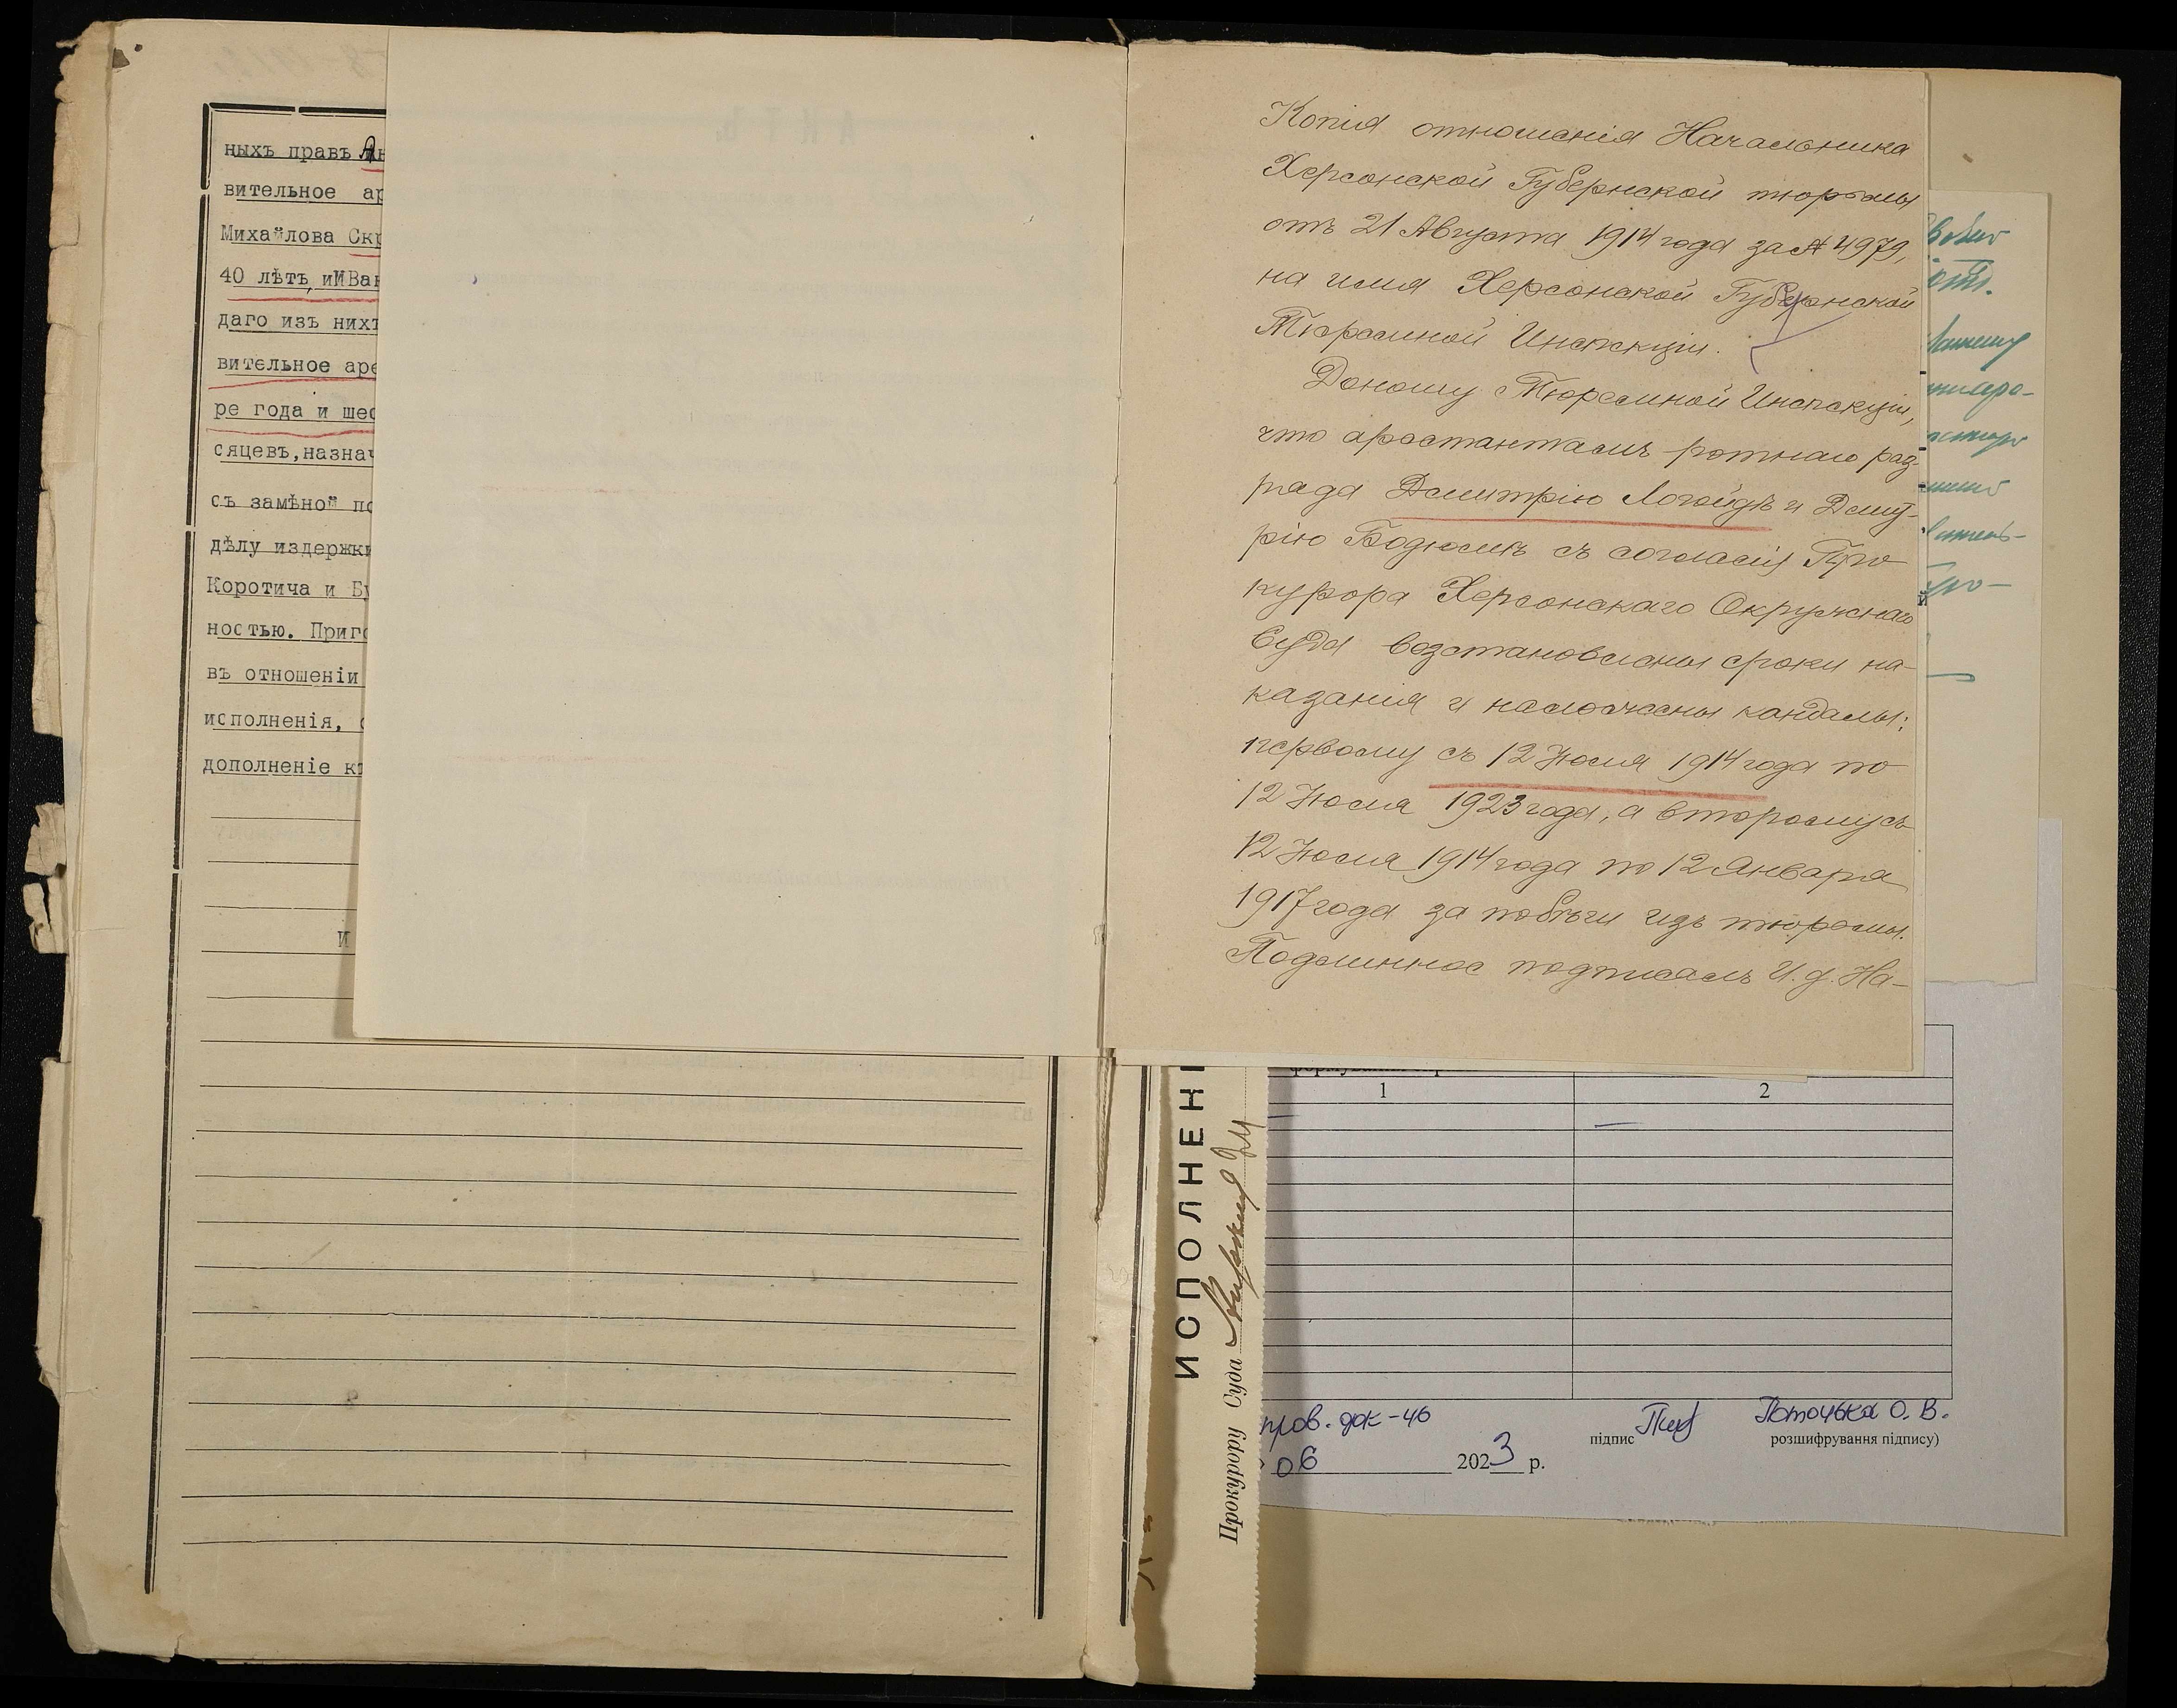 ныхъ правъ Ан
вительное ар
Михайлова Скр
40 лѣтъ, иИВан
даго изъ нихъ
вительное аре
ре года и шес
сяцевъ,назнач
съ замѣной по
дѣлу издержки
Коротича и Бу
ностью. Приго
въ отношеніи
исполненія, с
дополненіе къ
И
Копія отношенія Начальника
Херсонской Губернской тюрьмы
отъ 21 Августа 1914 года за № 4979,
на имя Херсонской Губернской
Тюремной Инспекціи.
Доношу Тюремной Инспекціи,
что арестантамъ ротнаго раз-
ряда Дмитрію Логойдѣ и Дмит-
рію Бодюлѣ съ согласія Про-
курора Херсонскаго Окружнаго
Суда возстановлены сроки на-
казанія и наложены кандалы:
первому съ 12 Іюля 1914 года по
12 Іюля 1923 года, а второму съ
12 Іюля 1914 года по 12 Января
1917 года за побѣги изъ тюрьмы.
Подлинное подписалъ И. д. На-
1 2
ИСПОЛНЕН
Прокурору Суда
пров. док-46
підпис Поточька О. В.
розшифрування підпису)
06 2023 р.